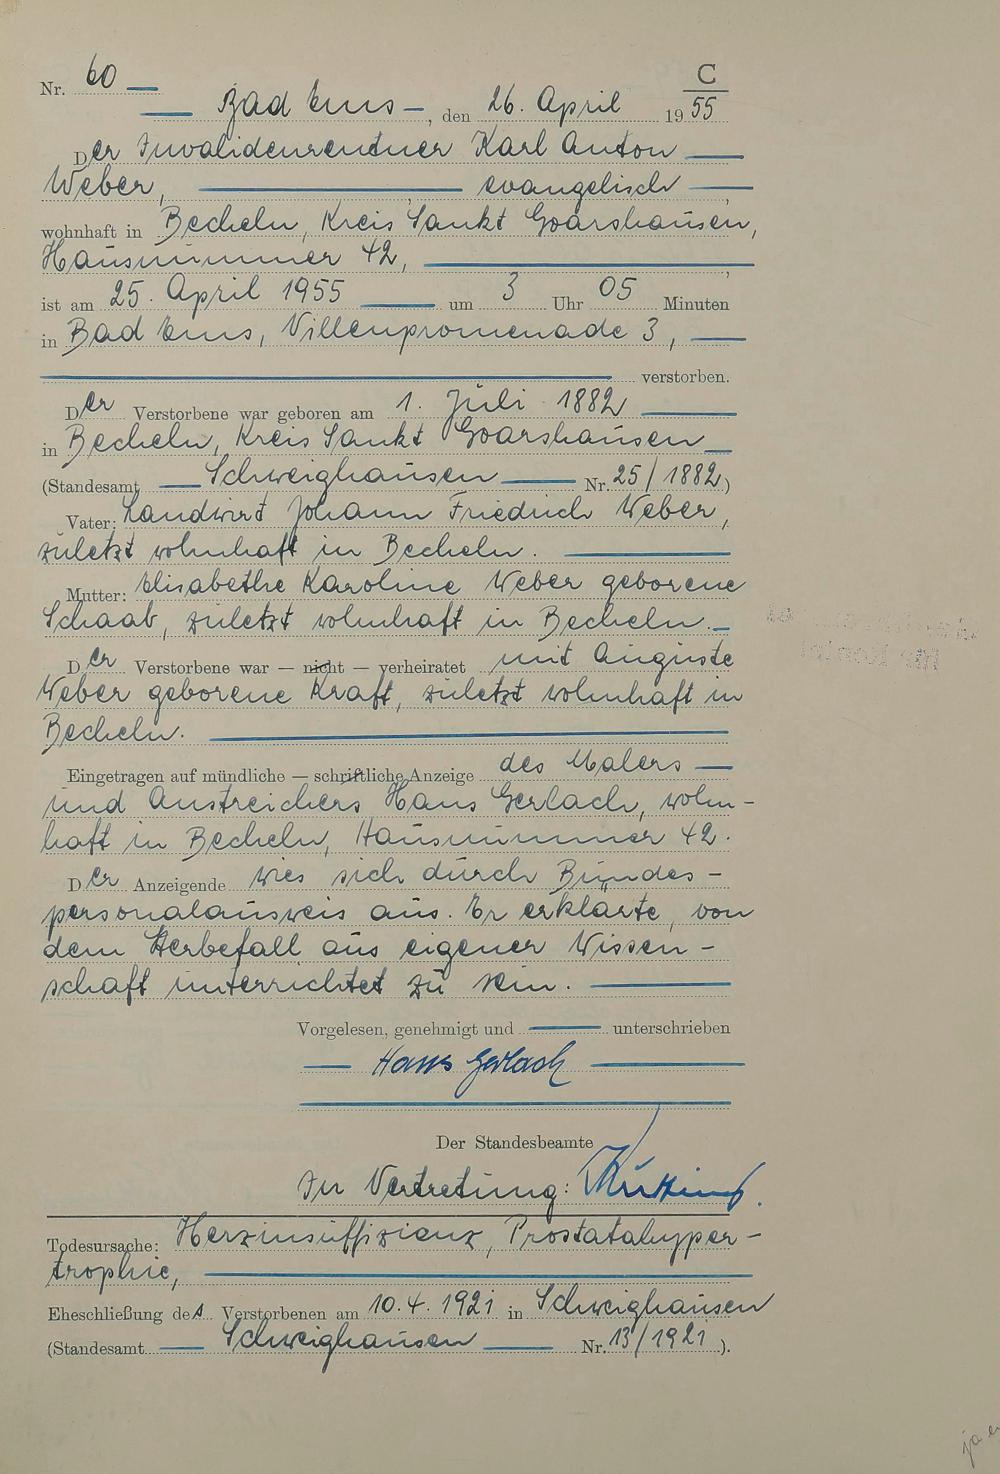 C
Nr. 60
Bad Ems, den 26. April 1955
Der Invalidenrentner Karl Anton
Weber, evangelisch
wohnhaft in Becheln, Kreis Sankt Goarshausen,
Hausnummer 42,
ist am 25. April 1955 um 3 Uhr 05 Minuten
in Bad Ems, Villenpromenade 3,
verstorben.
Der Verstorbene war geboren am 1. Juli 1882
in Becheln, Kreis Sankt Goarshausen
(Standesamt Schweighausen Nr. 25/1882)
Vater: Landwirt Johann Friedrich Weber,
zuletzt wohnhaft in Becheln.
Mutter: Elisabethe Karoline Weber geborene
Schaab, zuletzt wohnhaft in Becheln.
Der Verstorbene war — nicht — verheiratet mit Auguste
Weber geborene Kraft, zuletzt wohnhaft in
Becheln.
Eingetragen auf mündliche — schriftliche Anzeige des Malers
und Anstreichers Hans Gerlach, wohn-
haft in Becheln, Hausnummer 42.
Der Anzeigende wies sich durch Bundes-
personalausweis aus. Er erklärte, von
dem Sterbefall aus eigener Wissen-
schaft unterrichtet zu sein.
Vorgelesen, genehmigt und unterschrieben
Hans Gerlach
Der Standesbeamte
In Vertretung:
Todesursache: Herzinsuffizienz, Prostatahyper-
trophie,
Eheschließung des Verstorbenen am 10.4.1921 in Schweighausen
(Standesamt Schweighausen Nr. 13/1921).